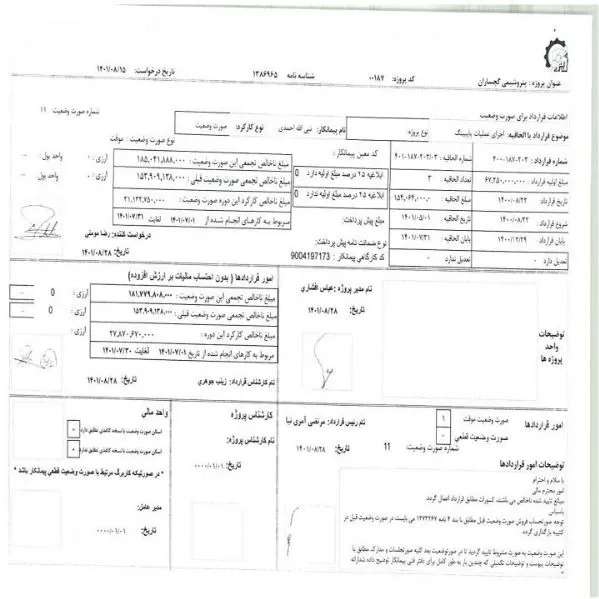 عنوان پروژه : پتروشیمی گچساران
کد پروژه: ۰۰۱۸۷
شناسه نامه ۱۳۸۶۹۶۵
تاریخ درخواست: ۱۴۰۱/۰۸/۱۵
اطلاعات قرارداد برای صورت وضعیت
شماره صورت وضعیت ۱۱
موضوع قرارداد یا الحاقیه: اجرای عملیات پایپینگ
نوع پروژه
نام پیمانکار: نبی الله احمدی
نوع کارکرد: صورت وضعیت
نوع صورت وضعیت: موقت
شماره قرارداد : ۴۰۰-۱۸۷-۲۰۳
شماره الحاقیه : ۴۰۱-۱۸۷-۲۰۳/۰۳
کد معین پیمانکار :
مبلغ ناخالص تجمعی این صورت وضعیت : ۱۸۵,۰۴۱,۸۸۸,۰۰۰
ارزی : ۰
واحد پول -
مبلغ اولیه قرارداد ۶۷,۲۵۰,۰۰۰,۰۰۰
تعداد الحاقیه ۳
ابلاغیه ۲۵ درصد مبلغ اولیه دارد 0
مبلغ ناخالص تجمعی صورت وضعیت قبلی : ۱۵۳,۹۰۹,۱۳۸,۰۰۰
ارزی : ۰
واحد پول -
تاریخ قرارداد ۱۴۰۰/۰۸/۲۲
مبلغ الحاقیه
ابلاغیه ۲۵ درصد مبلغ اولیه ندارد 0
مبلغ ناخالص کارکرد این دوره صورت وضعیت
شروع قرارداد ۱۴۰۰/۰۸/۲۲
تاریخ الحاقیه ۱۴۰۱/۰۵/۰۱
مبلغ پیش پرداخت:
مربوط به کارهای انجام شده از ۱۴۰۱/۰۷/۰۱ لغایت ۱۴۰۱/۰۷/۳۱
پایان قرارداد ۱۴۰۰/۱۲/۲۹
پایان الحاقیه ۱۴۰۱/۰۷/۳۱
نوع ضمانت نامه پیش پرداخت:
درخواست کننده: رضا مومنی
تعدیل دارد -
تعدیل ندارد -
کد کارگاهی پیمانکار : 9004197173
تاریخ: ۱۴۰۱/۰۸/۲۸
توضیحات
واحد
پروژه ها
نام مدیر پروژه :عباس افشاری
تاریخ: ۱۴۰۱/۰۸/۲۸
امور قراردادها ( بدون احتساب مالیات بر ارزش افزوده)
مبلغ ناخالص تجمعی این صورت وضعیت : ۱۸۱,۷۷۹,۸۰۸,۰۰۰
ارزی : 0 -
مبلغ ناخالص تجمعی صورت وضعیت قبلی : ۱۵۳,۹۰۹,۱۳۸,۰۰۰
ارزی : 0 -
مبلغ ناخالص کارکرد این دوره : ۲۷,۸۷۰,۶۷۰,۰۰۰
ارزی :
مربوط به کارهای انجام شده از تاریخ ۱۴۰۱/۰۷/۰۱ لغایت ۱۴۰۱/۰۷/۳۰
نام کارشناس قرارداد: زینب جوهری
تاریخ: ۱۴۰۱/۰۸/۲۸
امور قراردادها
صورت وضعیت موقت ۱
صورت وضعیت قطعی -
شماره صورت وضعیت: 11
نام رئیس قرارداد: مرتضی آمری نیا
تاریخ: ۱۴۰۱/۰۸/۲۸
کارشناس پروژه
نام کارشناس پروژه:
تاریخ: ۰۰۰۰/۰۱/۰۱
واحد مالی
اسکن صورت وضعیت با نسخه کاغذی تطابق دارد
اسکن صورت وضعیت با نسخه کاغذی تطابق ندارد
* در صورتیکه کاربرگ مرتبط با صورت وضعیت قطعی پیمانکار باشد *
مدیر عامل:
تاریخ: ۰۰۰۰/۰۱/۰۱
توضیحات امور قراردادها
با سلام و احترام
امور محترم مالی
مبالغ تایید شده ناخالص می باشند، کسورات مطابق قرارداد اعمال گردد.
باسپاس
توجه: صورتحساب فروش صورت وضعیت قبل مطابق با بند ۴ نامه ۱۳۷۳۲۶۷ می بایست در صورت وضعیت قبل در
کتیبه بارگذاری گردد.
این صورت وضعیت به صورت مشروط تایید گردید تا در صورتوضعیت بعد کلیه صورتجلسات و مدارک مطابق با
توضیحات پیوست و توضیحات تکمیلی که چندین بار به طور کامل برای دفتر فنی پیمانکار توضیح داده شدارائه